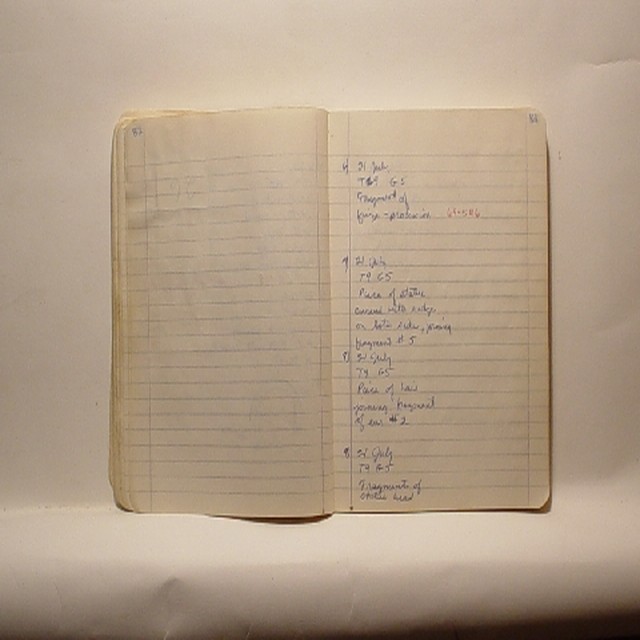 87
88
6) 21 July
T9 G5
Fragment of
frieze - procession 64-506
7) 21 July
T9 G5
Piece of statue
curved with edge
on both sides, joining
fragment # 5
8) 21 July
T9 G5
Piece of hair
joining fragment
of ear # 2
9) 21 July
T9 G5
Fragments of
statue head